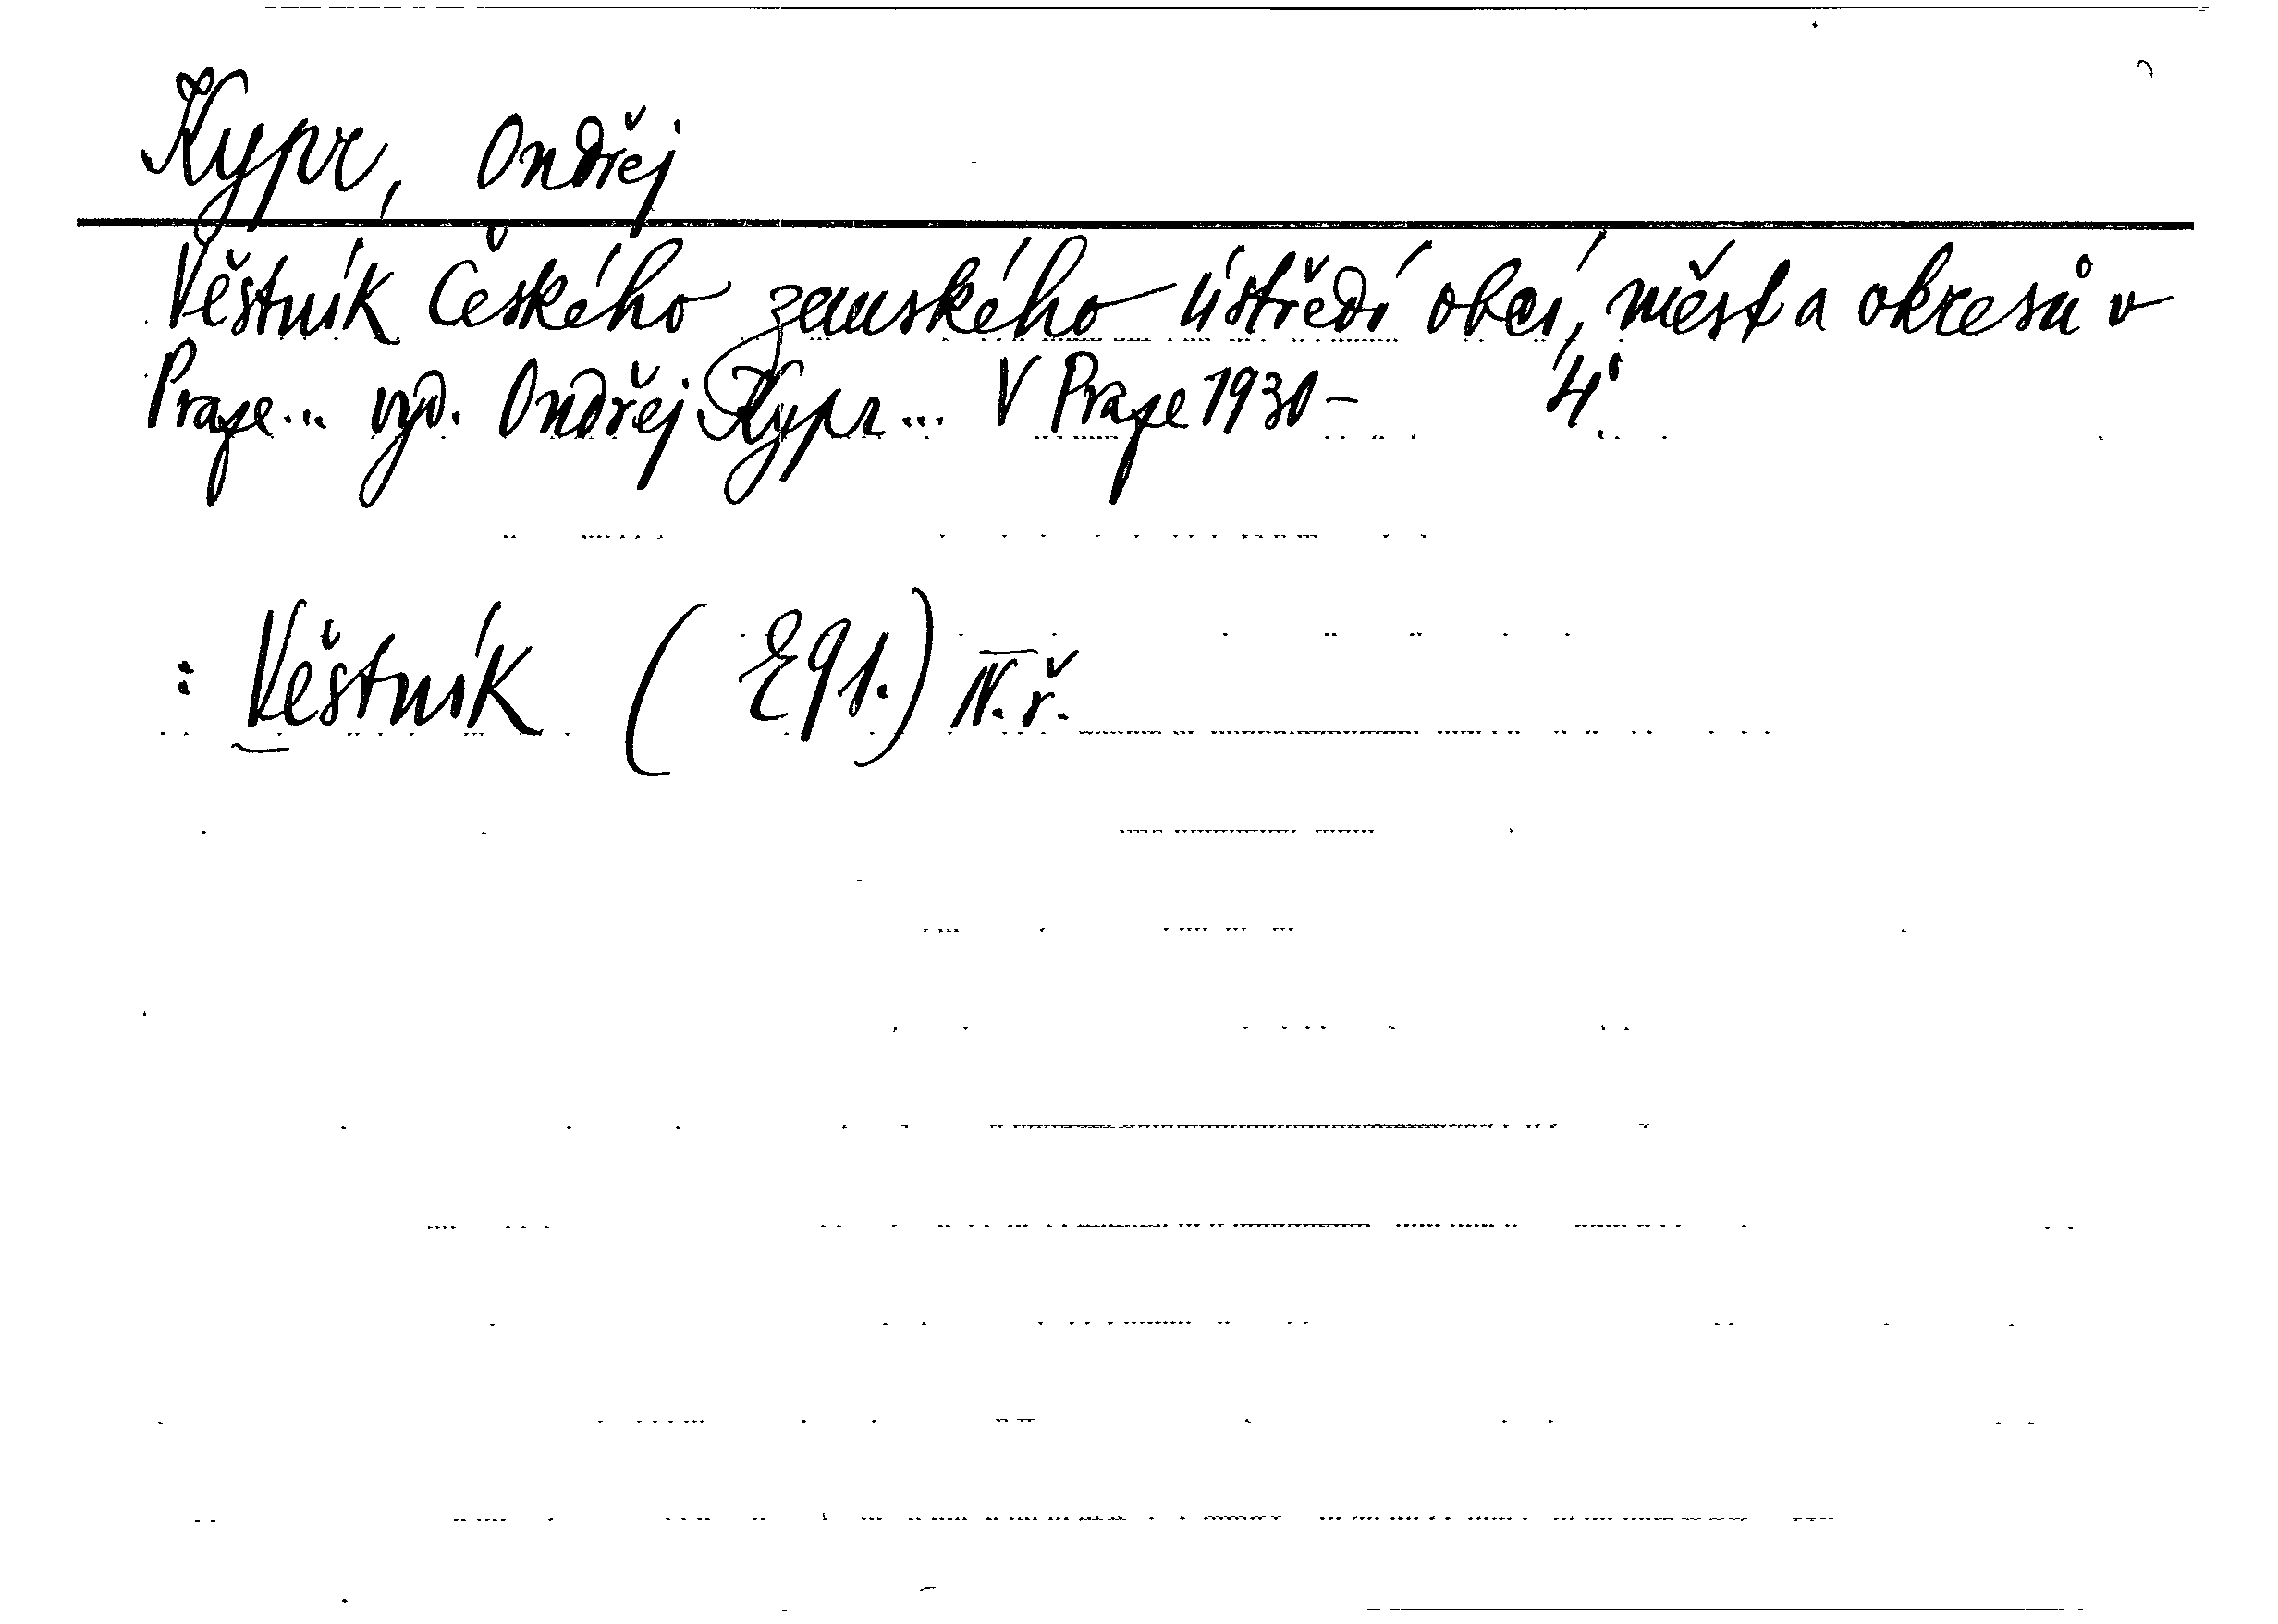 Kypr, Ondřej
Věstník Českého zemského ústředí obcí, měst a okresů v
Praze... vyd. Ondřej Kypr... V Praze 1930- 4°
: Věstník (E91.) N.ř.